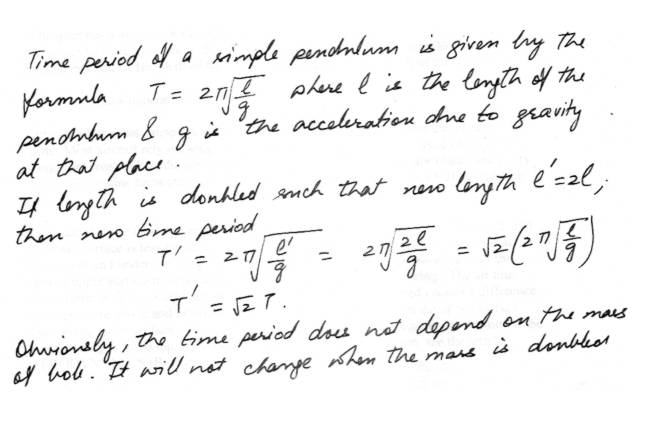 Time period of a simple pendulum is given by the
formula T = 2π√(l/g) where l is the length of the
pendulum & g is the acceleration due to gravity
at that place.
If length is doubled such that new length l' = 2l,
then new time period
T' = 2π√(l'/g) = 2π√(2l/g) = √2(2π√(l/g))
T' = √2 T.
Obviously, the time period does not depend on the mass
of bob. It will not change when the mass is doubled